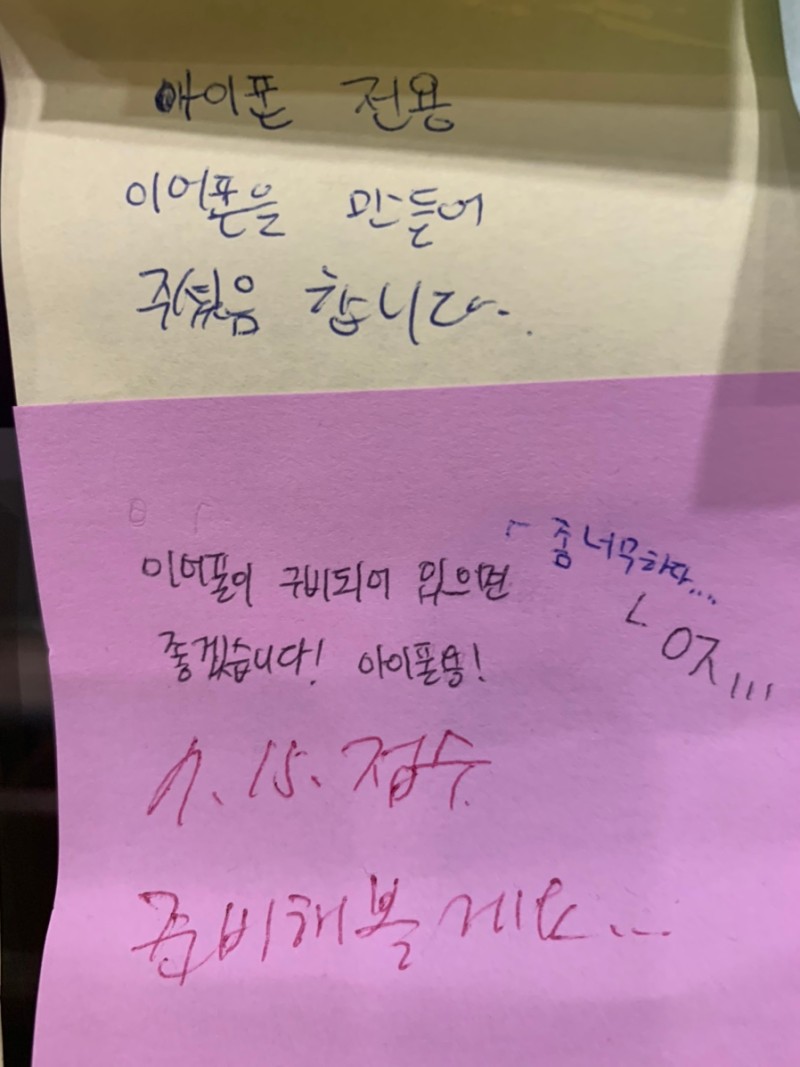 아이폰 전용
이어폰을 만들어
주셨음 합니다.
이어폰이 구비되어 있으면
좋겠습니다! 아이폰용!
ㄴ 좀 너무하다....
ㄴ ㅇㅈ,,,
7. 15. 접수
준비해볼게요...